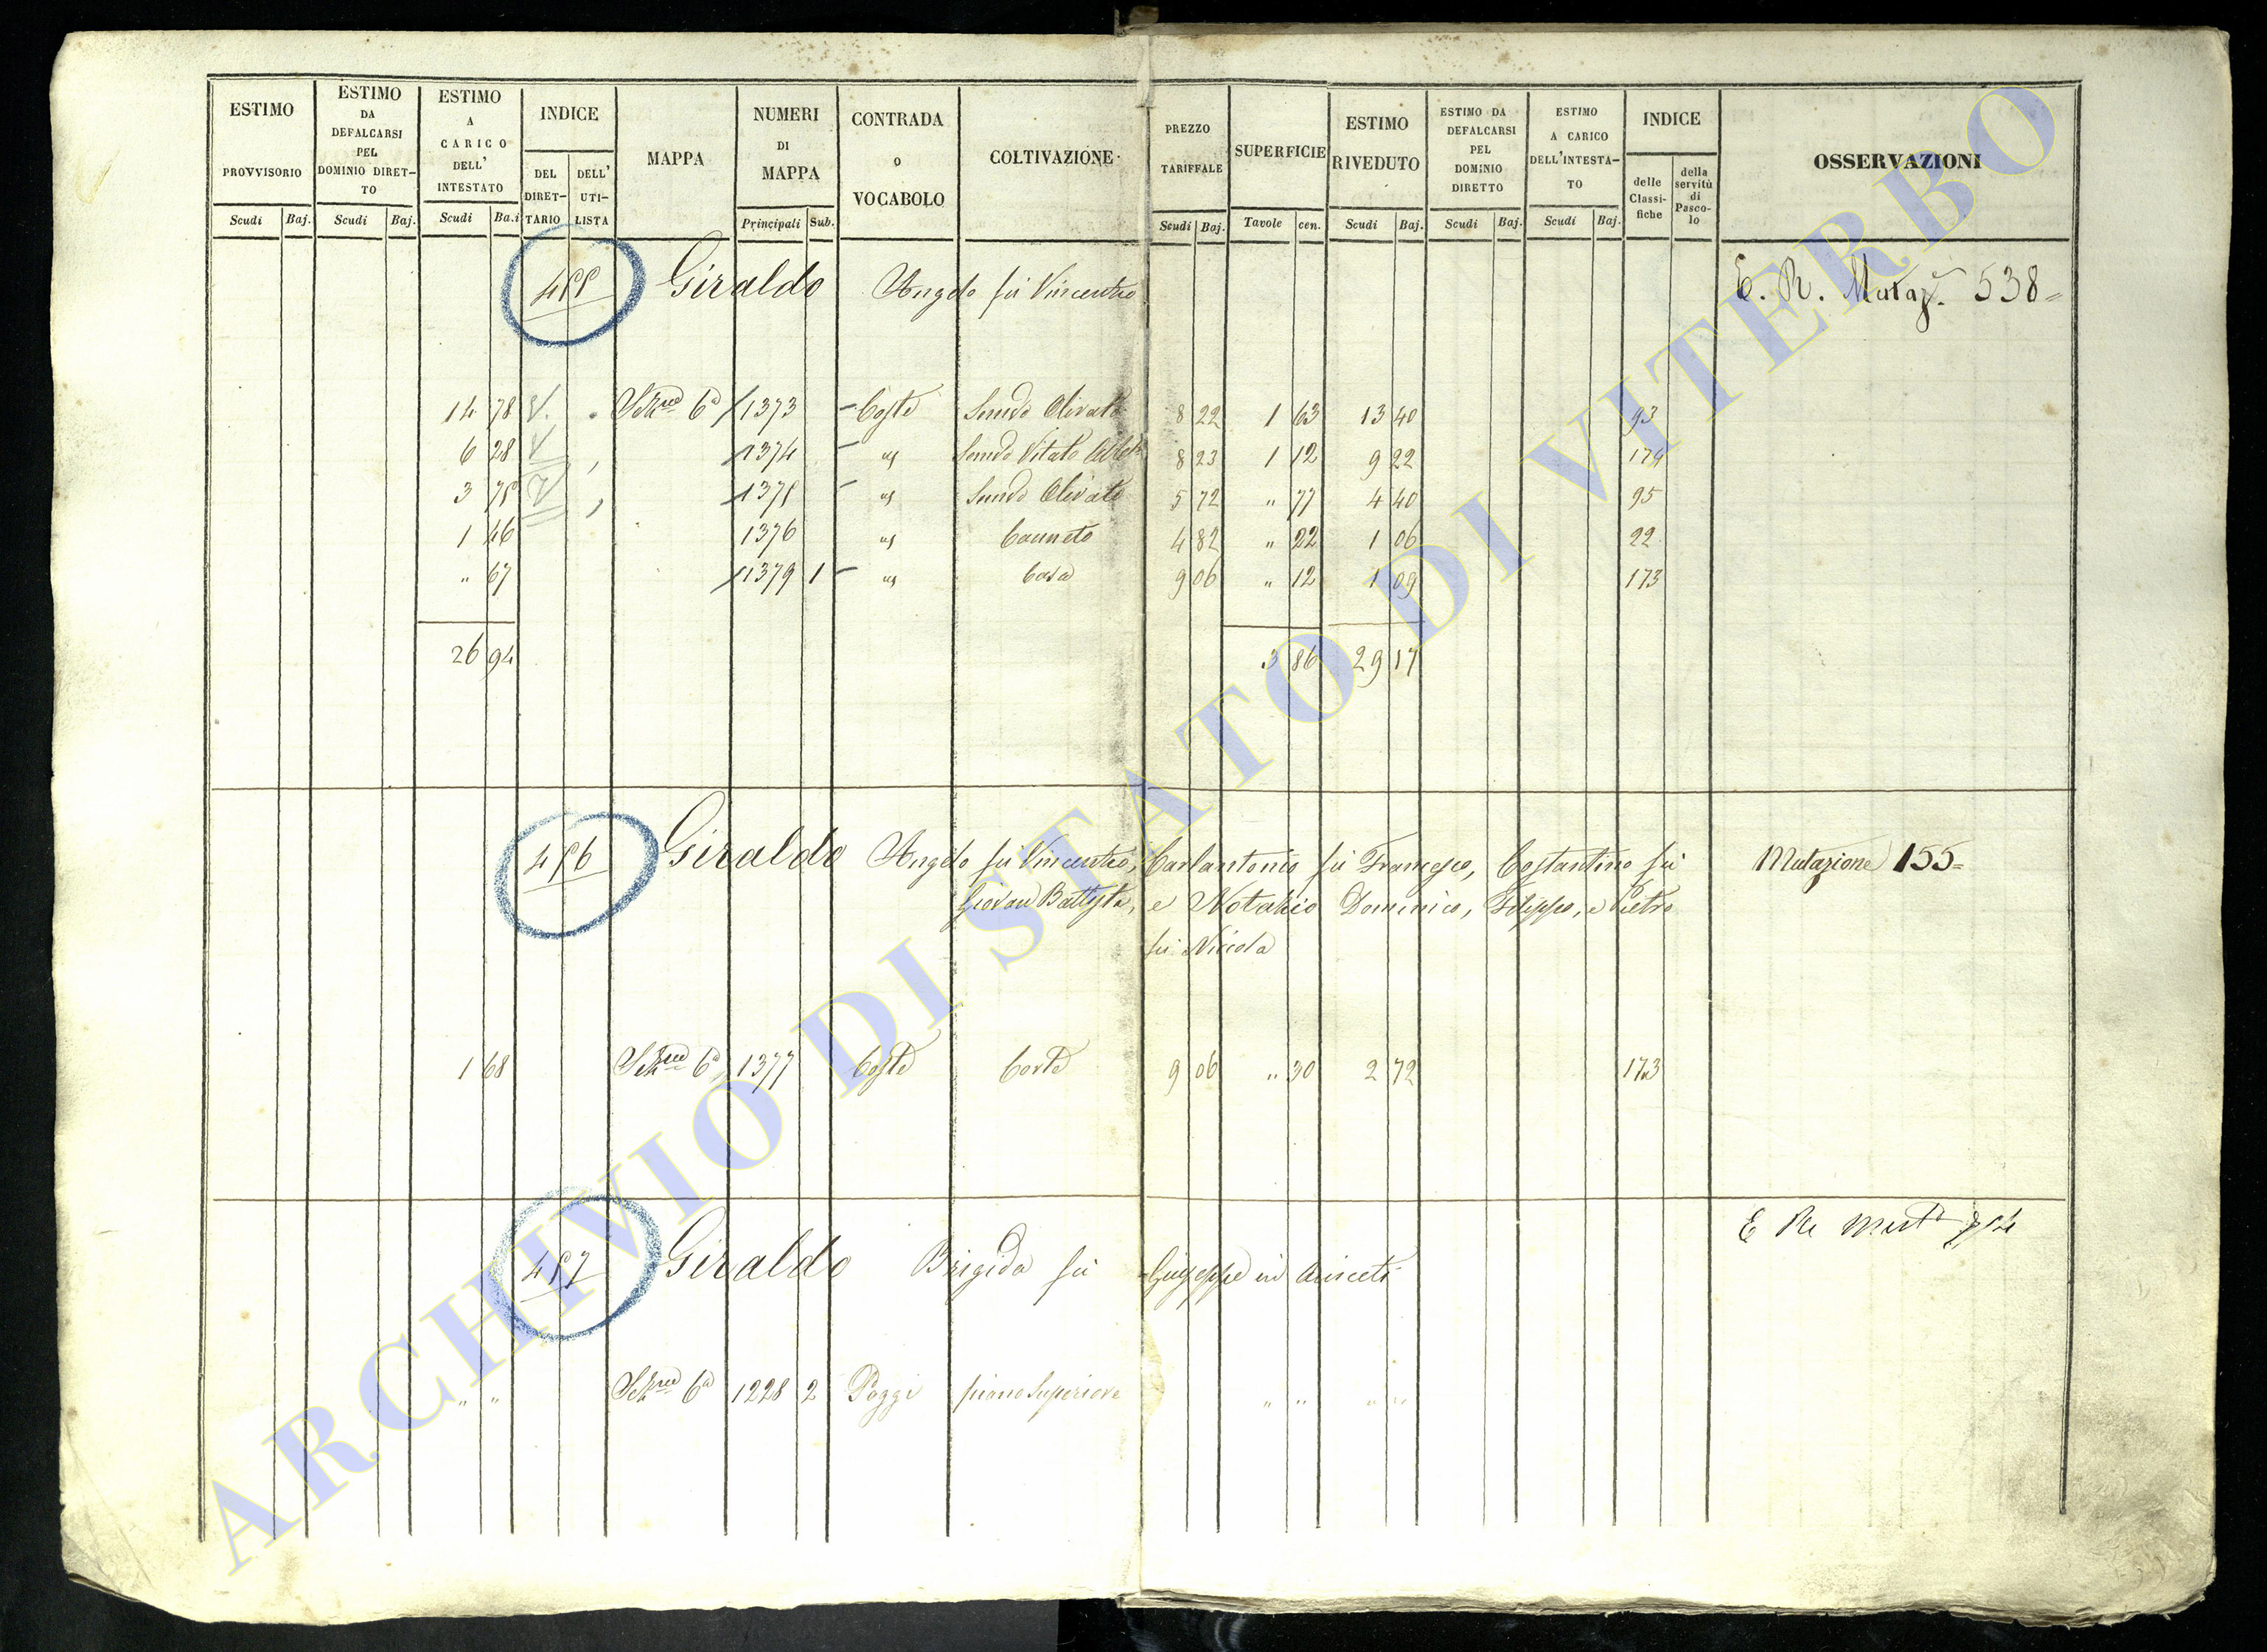 ESTIMO PROVVISORIO
ESTIMO DA DEFALCARSI PEL DOMINIO DIRETTO
ESTIMO A CARICO DELL' INTESTATO
INDICE
DEL DIRETTARIO
DELL' UTILISTA
MAPPA
NUMERI DI MAPPA
CONTRADA O VOCABOLO
COLTIVAZIONE
PREZZO TARIFFALE
SUPERFICIE
ESTIMO RIVEDUTO
ESTIMO DA DEFALCARSI PEL DOMINIO DIRETTO
ESTIMO A CARICO DELL'INTESTATO
INDICE
delle Classifiche
della servitù di Pascolo
OSSERVAZIONI
Scudi Baj. Scudi Baj. Scudi Ba.i Principali Sub. Scudi Baj. Tavole cen. Scudi Baj. Scudi Baj. Scudi Baj.
455 Giraldo Angelo fu Vincenzo E. R. Mutaz. 538=
14 78 6ª 1373 Coste Semvo Olivato 8 22 1 63 13 40 93
6 28 1374 Semvo Vitato 8 23 1 12 9 22 174
3 75 1375 Semvo Olivato 5 72 " 77 4 40 95
1 46 1376 Canneto 4 82 " 22 1 06 22
" 67 1379 1 Casa 9 06 " 12 1 09 173
26 94 3 86 29 17
456 Giraldo Angelo fu Vincenzo, Carlantonio fu Francesco, Costantino fu Mutazione 155=
Giovan Battista, e Notario Domenico, Filippo, e Pietro
fu Niccola
1 68 6ª 1377 Coste Corte 9 06 " 30 2 72 173
457 Giraldo Brigida fu Giuseppe in Aniceti
" " 6ª 1228 2 Poggi piano Superiore " " " "
ARCHIVIO DI STATO DI VITERBO